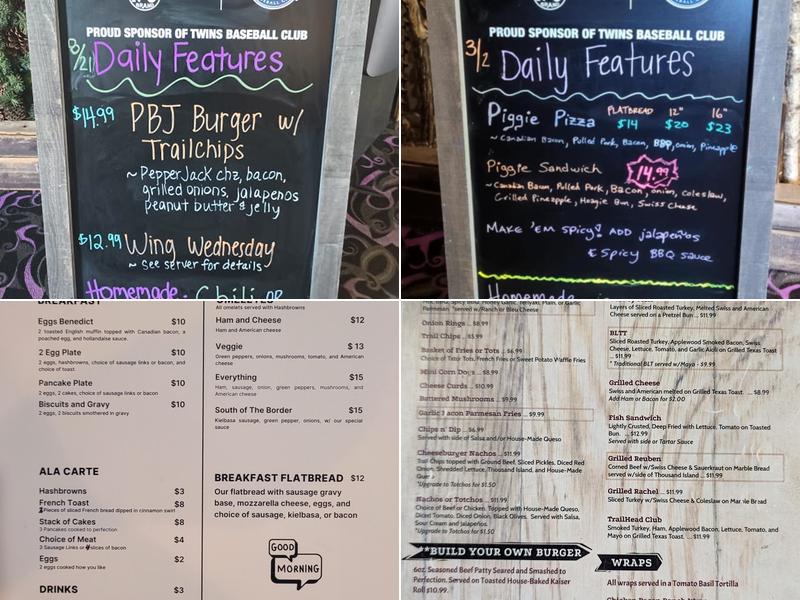 PROUD SPONSOR OF TWINS BASEBALL CLUB
3/21 Daily Features
$14.99 PBJ Burger w/
Trailchips
~ PepperJack chz, bacon,
grilled onions, jalapenos
peanut butter & jelly
$12.99 Wing Wednesday
~ see server for details
Homemade - Chili or
PROUD SPONSOR OF TWINS BASEBALL CLUB
3/2 Daily Features
Piggie Pizza FLATBREAD $14 12" $20 16" $23
~ Canadian Bacon, Pulled Pork, Bacon, BBQ, onion, Pineapple
Piggie Sandwich 14.99
~ Canadian Bacon, Pulled Pork, Bacon, onion, coleslaw,
Grilled Pineapple, Hoagie Bun, Swiss Cheese
MAKE 'EM SPICY! ADD jalapeños
& Spicy BBQ sauce
Homemade
BREAKFAST
Eggs Benedict $10
2 toasted English muffin topped with Canadian bacon, a
poached egg, and hollandaise sauce.
2 Egg Plate $10
2 eggs, hashbrowns, choice of sausage links or bacon, and
choice of toast.
Pancake Plate $10
2 eggs, 2 cakes, choice of sausage links or bacon
Biscuits and Gravy $10
2 eggs, 2 biscuits smothered in gravy
ALA CARTE
Hashbrowns $3
French Toast $8
2 Pieces of sliced French bread dipped in cinnamon swirl
Stack of Cakes $8
3 Pancakes cooked to perfection
Choice of Meat $4
3 Sausage Links or 4 slices of bacon
Eggs $2
2 eggs cooked how you like
DRINKS $3
OMELETTES
All omelets served with Hashbrowns
Ham and Cheese $12
Ham and American cheese
Veggie $ 13
Green peppers, onions, mushrooms, tomato, and American
cheese
Everything $15
Ham, sausage, onion, green peppers, mushrooms, and
American cheese
South of The Border $15
Kielbasa sausage, green pepper, onions, w/ our special
sauce
BREAKFAST FLATBREAD $12
Our flatbread with sausage gravy
base, mozzarella cheese, eggs, and
choice of sausage, kielbasa, or bacon
GOOD
MORNING
Parmesan *served w/Ranch or Bleu Cheese
Onion Rings ... $8.99
Trail Chips ... $5.99
Basket of Fries or Tots ... $6.99
Choice of Tator Tots, French Fries or Sweet Potato Waffle Fries
Mini Corn Dogs ... $8.99
Cheese Curds ... $10.99
Buttered Mushrooms ... $9.99
Garlic Bacon Parmesan Fries ... $9.99
Chips n' Dip ... $6.99
Served with side of Salsa and/or House-Made Queso
Cheeseburger Nachos ... $11.99
Trail Chips topped with Ground Beef, Sliced Pickles, Diced Red
Onion, Shredded Lettuce, Thousand Island, and House-Made
*Upgrade to Totchos for $1.50
Nachos or Totchos ... $11.99
Choice of Beef or Chicken. Topped with House-Made Queso,
Diced Tomato, Diced Onion, Black Olives. Served with Salsa,
Sour Cream and Jalapeños.
*Upgrade to Totchos for $1.50
**BUILD YOUR OWN BURGER
6oz. Seasoned Beef Patty Seared and Smashed to
Perfection. Served on Toasted House-Baked Kaiser
Roll $10.99.
Layers of Sliced Roasted Turkey, Melted Swiss and American
Cheese served on a Pretzel Bun ... $11.99
BLTT
Sliced Roasted Turkey, Applewood Smoked Bacon, Swiss
Cheese, Lettuce, Tomato, and Garlic Aioli on Grilled Texas Toast
... $11.99
* Traditional BLT served w/Mayo - $9.99
Grilled Cheese
Swiss and American melted on Grilled Texas Toast. ... $8.99
Add Ham or Bacon for $2.00
Fish Sandwich
Lightly Crusted, Deep Fried with Lettuce, Tomato on Toasted
Bun. ... $12.99
Served with side or Tartar Sauce
Grilled Reuben
Corned Beef w/Swiss Cheese & Sauerkraut on Marble Bread
served w/side of Thousand Island ... $11.99
Grilled Rachel ... $11.99
Sliced Turkey w/Swiss Cheese & Coleslaw on Marble Bread
TrailHead Club
Smoked Turkey, Ham, Applewood Bacon, Lettuce, Tomato, and
Mayo on Grilled Texas Toast. ... $11.99
WRAPS
All wraps served in a Tomato Basil Tortilla